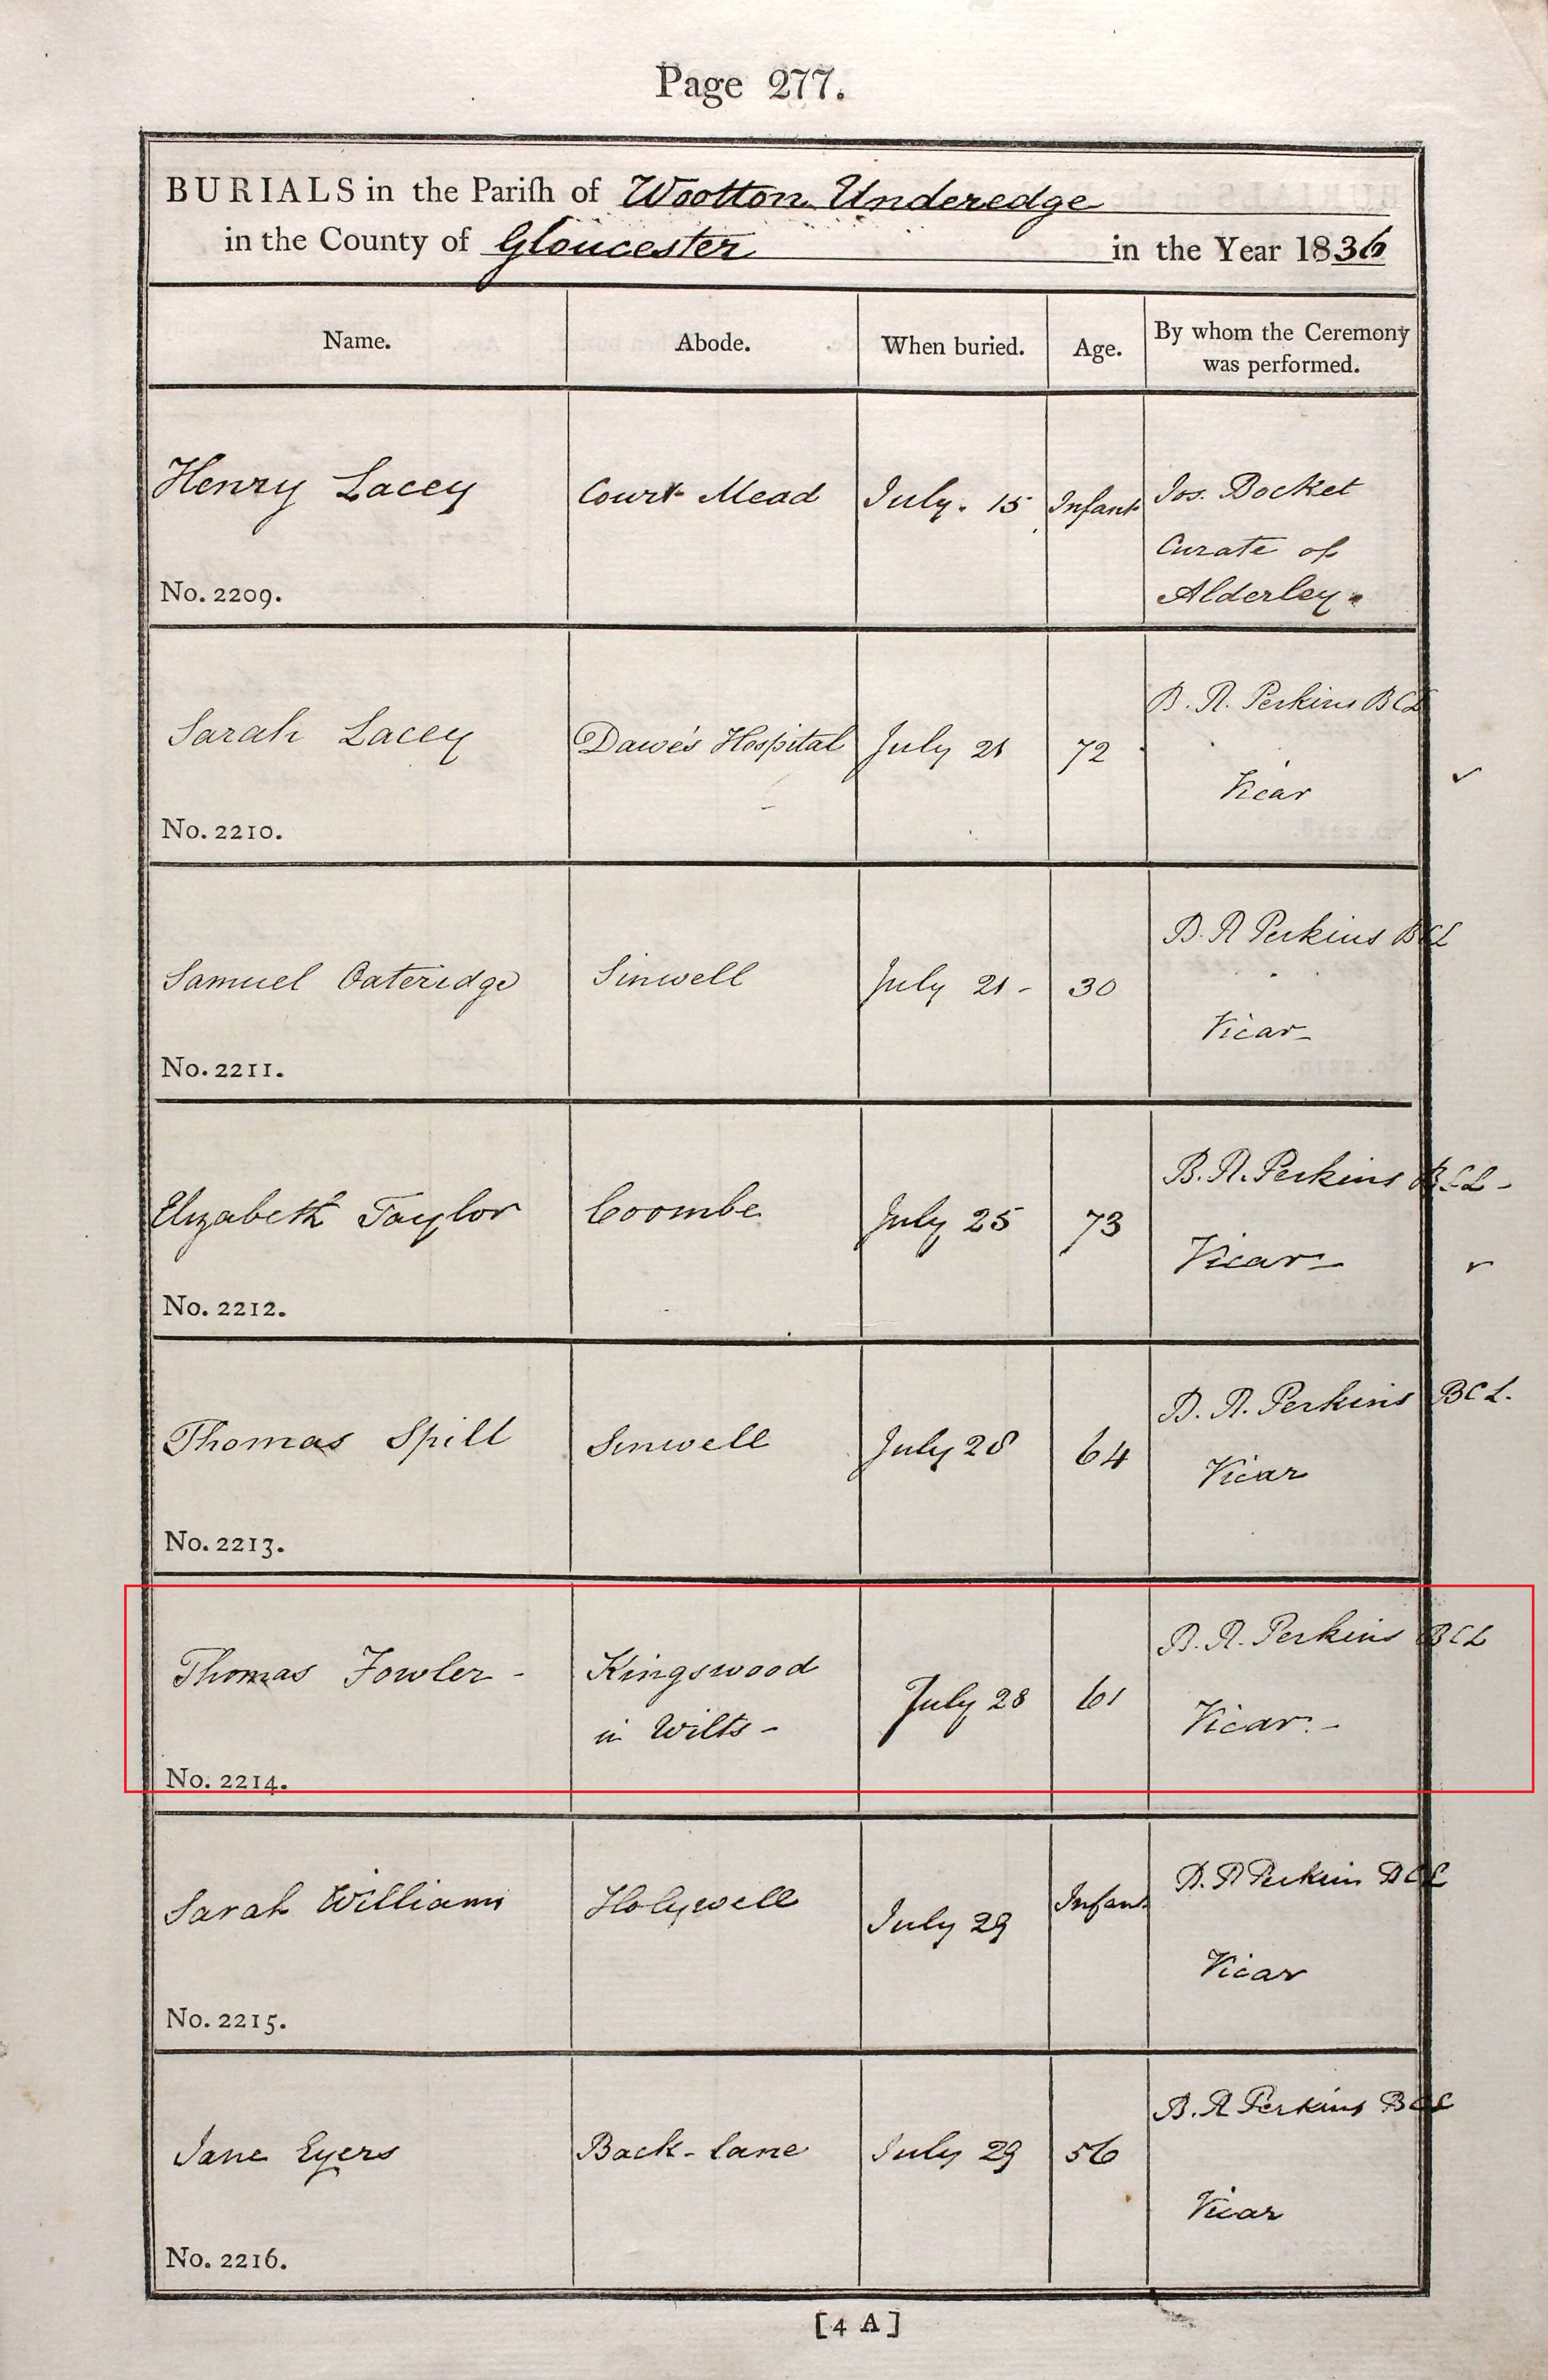 Page 277.
BURIALS in the Pariſh of Wootton Underedge
in the County of Gloucester in the Year 1836
Name. Abode. When buried. Age. By whom the Ceremony was performed.
Henry Lacey Court Mead July. 15 Infant Jos. Bocket
Curate of
Alderley.
No. 2209.
Sarah Lacey Dawe's Hospital July 21 72 B. R. Perkins BCL
Vicar
No. 2210.
Samuel Oateridge Sinwell July 21 - 30 B. R Perkins BCL
Vicar
No. 2211.
Elizabeth Taylor Coombe July 25 73 B. R. Perkins BCL -
Vicar -
No. 2212.
Thomas Spill Sinwell July 28 64 B. R. Perkins BCL.
Vicar
No. 2213.
Thomas Fowler - Kingswood July 28 61 B. R. Perkins BCL
in Wilts - Vicar. -
No. 2214.
Sarah Williams Holywell July 29 Infant B. R Perkins BCL
Vicar
No. 2215.
Jane Eyers Back-lane July 29 56 B. R Perkins BCL
Vicar
No. 2216.
[4 A]